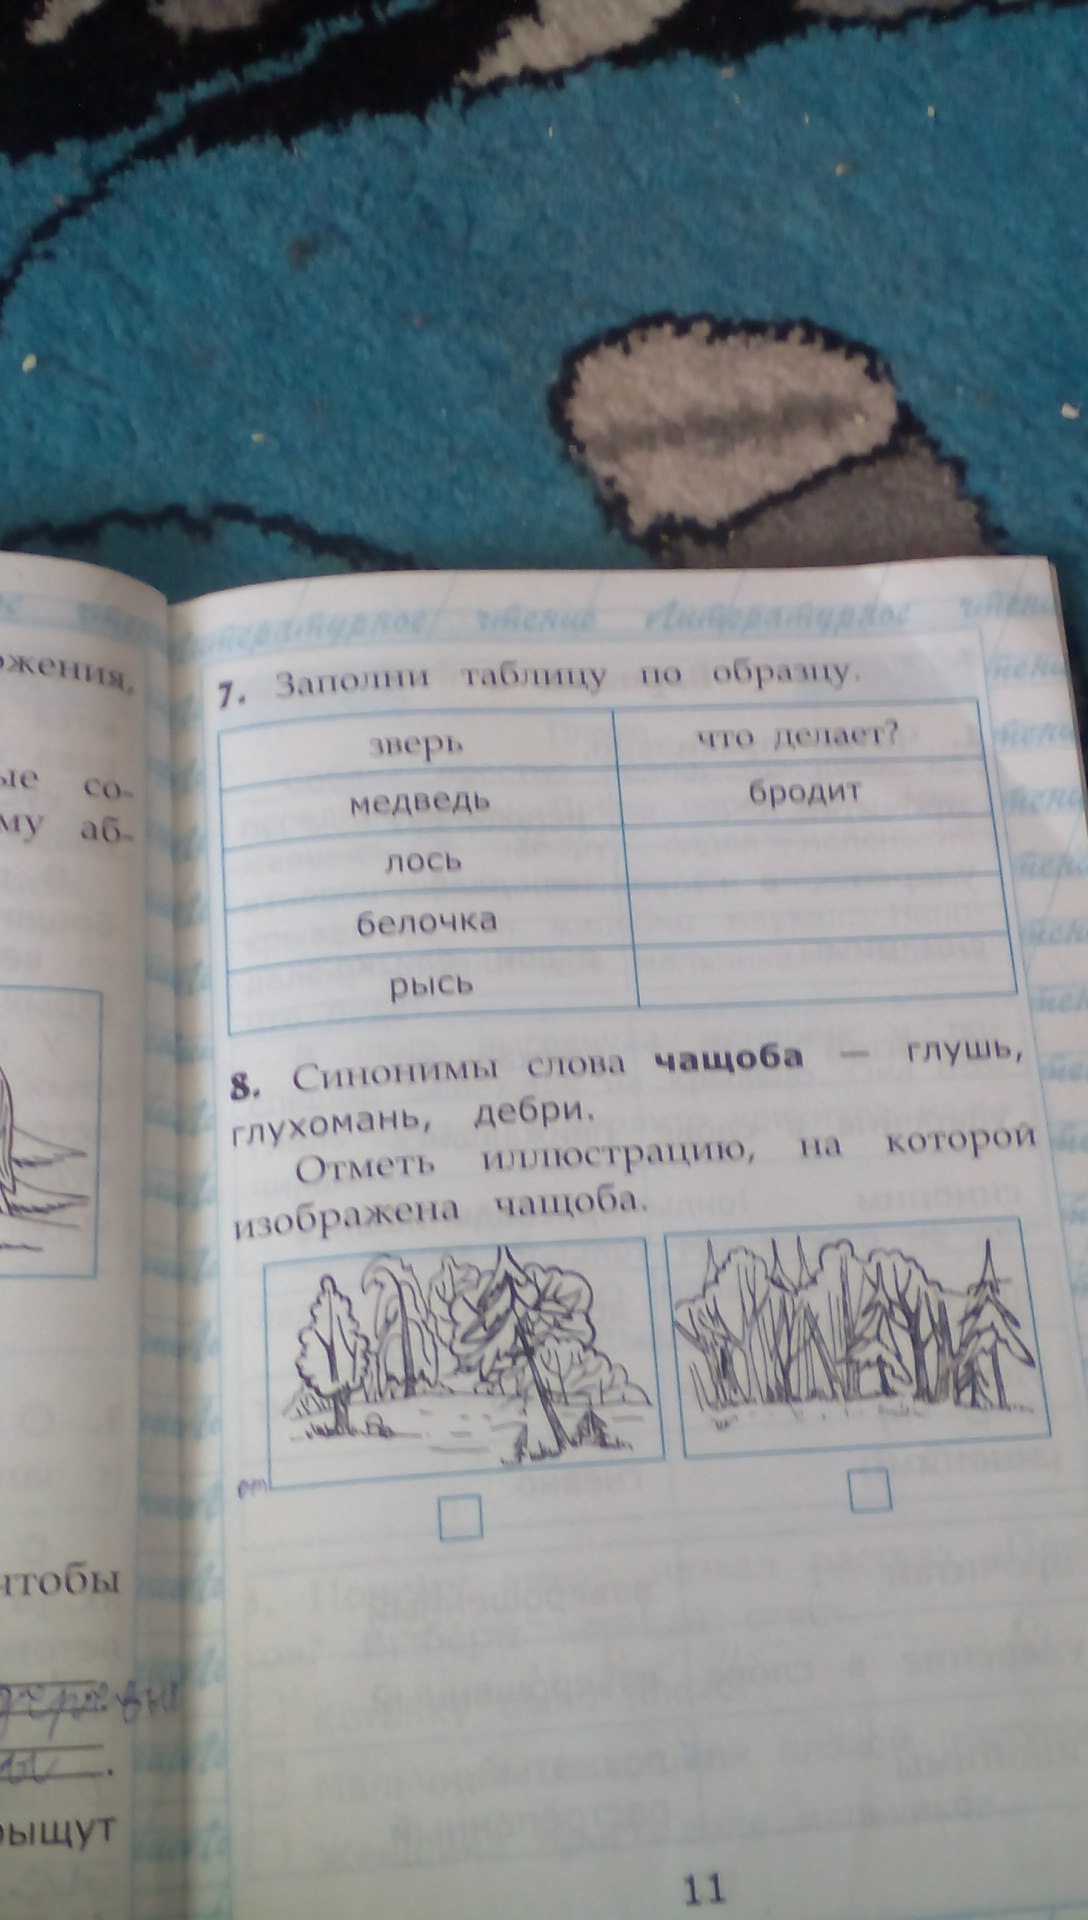 чтение Литературное чтение Литературное чтение
ожения,
ые со-
му аб-
чтобы
рыщут
7. Заполни таблицу по образцу.
зверь что делает?
медведь бродит
лось
белочка
рысь
8. Синонимы слова чащоба — глушь,
глухомань, дебри.
Отметь иллюстрацию, на которой
изображена чащоба.
от
11